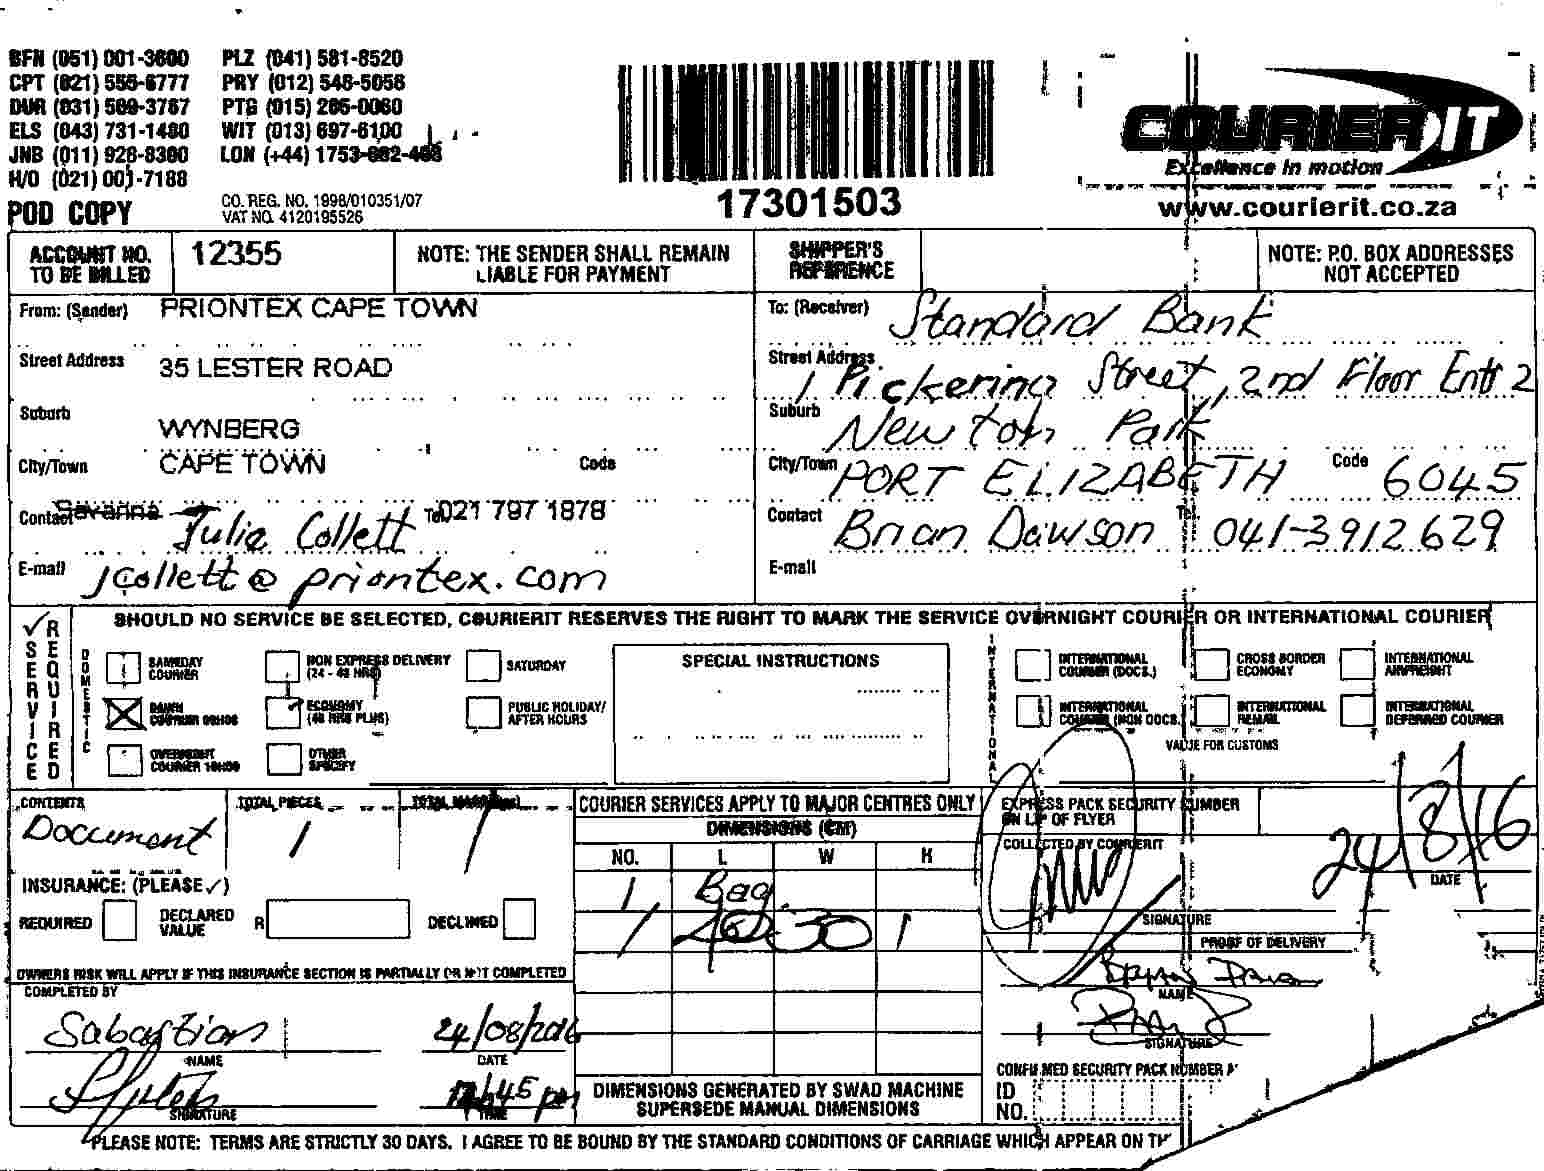 BFN (051) 001-3600 PLZ (041) 581-8520
CPT (021) 555-6777 PRY (012) 548-5058
DUR (031) 569-3767 PTG (015) 265-0060
ELS (043) 731-1480 WIT (013) 697-6100
JNB (011) 928-8300 LON (+44) 1753-682-468
H/O (021) 001-7188
POD COPY
CO. REG. NO. 1998/010351/07
VAT NO. 4120195526
17301503
COURIER IT
Excellence in motion
www.courierit.co.za
ACCOUNT NO. TO BE BILLED 12355
NOTE: THE SENDER SHALL REMAIN LIABLE FOR PAYMENT
SHIPPER'S REFERENCE
NOTE: P.O. BOX ADDRESSES NOT ACCEPTED
From: (Sender) PRIONTEX CAPE TOWN
Street Address 35 LESTER ROAD
Suburb WYNBERG
City/Town CAPE TOWN Code
Contact Savanna Julia Collett Tel. 021 797 1878
E-mail jcollett@priontex.com
To: (Receiver) Standard Bank
Street Address 1 Pickering Street, 2nd Floor Entr 2
Suburb Newton Park
City/Town PORT ELIZABETH Code 6045
Contact Brian Dawson Tel. 041-3912629
E-mail
SHOULD NO SERVICE BE SELECTED, COURIERIT RESERVES THE RIGHT TO MARK THE SERVICE OVERNIGHT COURIER OR INTERNATIONAL COURIER
✓ SERVICE REQUIRED
DOMESTIC
SAMEDAY COURIER
NON EXPRESS DELIVERY (24 - 48 HRS)
SATURDAY
DAWN COURIER 09H00
ECONOMY (48 HRS PLUS)
PUBLIC HOLIDAY/ AFTER HOURS
OVERNIGHT COURIER 10H00
OTHER SPECIFY
SPECIAL INSTRUCTIONS
INTERNATIONAL
INTERNATIONAL COURIER (DOCS.)
CROSS BORDER ECONOMY
INTERNATIONAL AIRFREIGHT
INTERNATIONAL COURIER (NON DOCS.)
INTERNATIONAL REMAIL
INTERNATIONAL DEFERRED COURIER
VALUE FOR CUSTOMS
CONTENTS Document
TOTAL PIECES 1
TOTAL MASS 1
INSURANCE: (PLEASE ✓)
REQUIRED DECLARED VALUE R DECLINED
OWNERS RISK WILL APPLY IF THIS INSURANCE SECTION IS PARTIALLY OR NOT COMPLETED
COMPLETED BY
Sabastian 24/08/2016
NAME DATE
45 pm
SIGNATURE TIME
COURIER SERVICES APPLY TO MAJOR CENTRES ONLY
DIMENSIONS (CM)
NO. L W H
1 Bag
1 40 30 1
DIMENSIONS GENERATED BY SWAD MACHINE SUPERSEDE MANUAL DIMENSIONS
EXPRESS PACK SECURITY NUMBER ON LIP OF FLYER
COLLECTED BY COURIERIT
24/8/16
DATE
SIGNATURE
PROOF OF DELIVERY
NAME
SIGNATURE
CONFIRMED SECURITY PACK NUMBER
ID NO.
PLEASE NOTE: TERMS ARE STRICTLY 30 DAYS. I AGREE TO BE BOUND BY THE STANDARD CONDITIONS OF CARRIAGE WHICH APPEAR ON TH